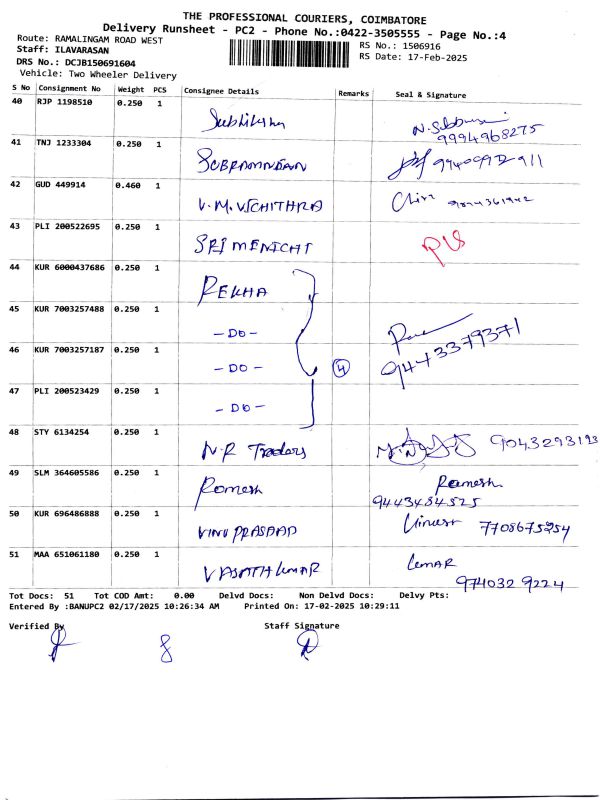 THE PROFESSIONAL COURIERS, COIMBATORE
Delivery Runsheet - PC2 - Phone No.:0422-3505555 - Page No.:4
Route: RAMALINGAM ROAD WEST
RS No.: 1506916
Staff: ILAVARASAN
RS Date: 17-Feb-2025
DRS No.: DCJB150691604
Vehicle: Two Wheeler Delivery
S No Consignment No Weight PCS Consignee Details Remarks Seal & Signature
40 RJP 1198510 0.250 1
9994968275
41 TNJ 1233304 0.250 1 SUBRAMANIAN
42 GUD 449914 0.460 1 V.M.VICHITHRA
43 PLI 200522695 0.250 1
44 KUR 6000437686 0.250 1 REKHA
45 KUR 7003257488 0.250 1 -DO-
46 KUR 7003257187 0.250 1 -DO- 4 9443379371
47 PLI 200523429 0.250 1 -DO-
48 STY 6134254 0.250 1 N.R Traders 9043293193
49 SLM 364605586 0.250 1 Ramesh Ramesh
9443484525
50 KUR 696486888 0.250 1 VINU PRASAAD 7708675254
51 MAA 651061180 0.250 1 VASATH KUMAR KUMAR
9740329224
Tot Docs: 51 Tot COD Amt: 0.00 Delvd Docs: Non Delvd Docs: Delvy Pts:
Entered By :BANUPC2 02/17/2025 10:26:34 AM Printed On: 17-02-2025 10:29:11
Verified By Staff Signature